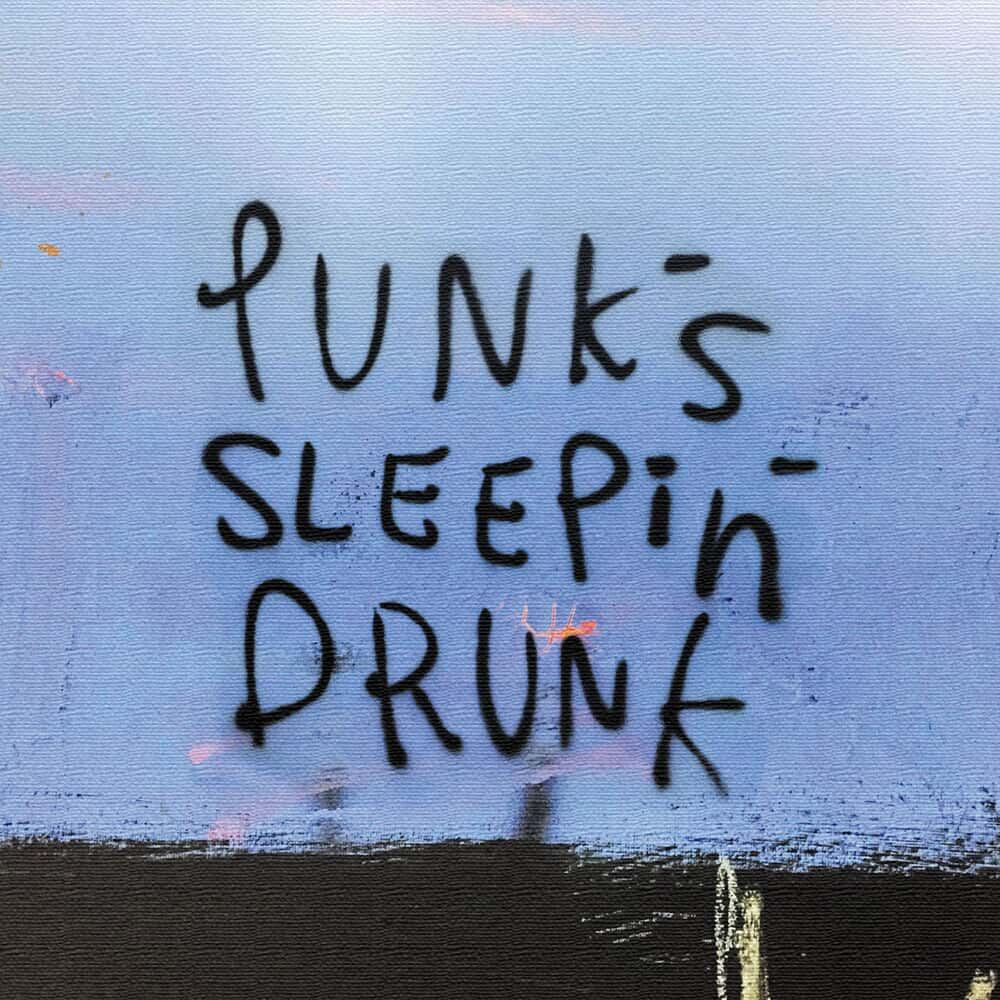 PUNK'S
SLEEPiN'
DRUNK